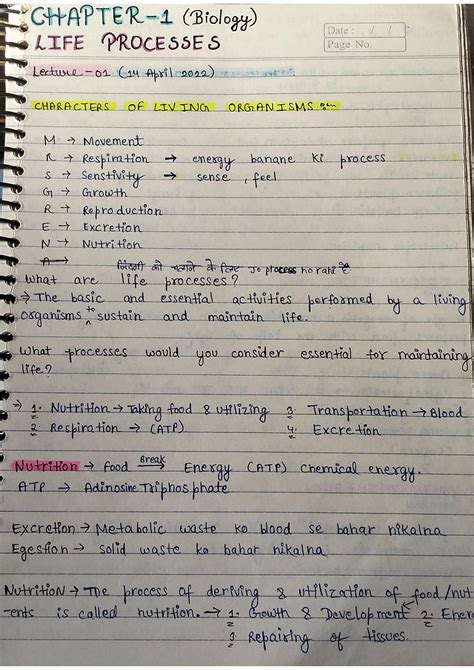 CHAPTER-1 (Biology)
LIFE PROCESSES
Date : / /
Page No.
Lecture-01 (14 April 2022)
CHARACTERS OF LIVING ORGANISMS
M → Movement
R → Respiration → energy banane ki process
S → Senstivity → sense, feel
G → Growth
R → Reproduction
E → Excretion
N → Nutrition
A →
जिंदगी को चलाने के लिए jo process ho rahi है
What are life processes?
→ The basic and essential activities performed by a living
organisms to sustain and maintain life.
What processes would you consider essential for maintaining
life?
→ 1. Nutrition → Taking food & utilizing 3. Transportation → Blood
2. Respiration → (ATP) 4. Excretion
Nutrition → food Break → Energy (ATP) chemical energy.
ATP → Adinosine Triphosphate
Excretion → Metabolic waste ko blood se bahar nikalna
Egestion → solid waste ko bahar nikalna
Nutrition → The process of deriving & utilization of food/nut
-ents is called nutrition. → 1. Growth & Development 2. Ener
3. Repairing of tissues.